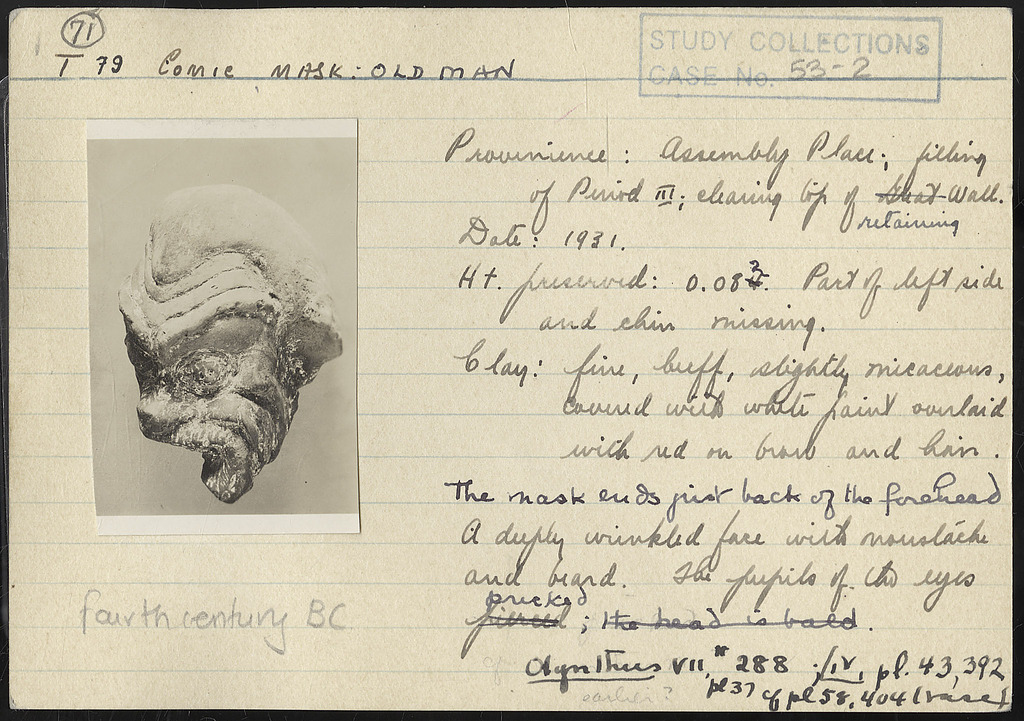 71
T 79 Comic MASK: OLD MAN
STUDY COLLECTIONS
CASE No. 53-2
Provenience: Assembly Place; filling
of Period III; clearing top of Wall.
retaining
Date: 1931.
Ht. preserved: 0.083. Part of left side
and chin missing.
Clay: fine, buff, slightly micaceous,
covered with white paint overlaid
with red on brow and hair.
The mask ends just back of the forehead
A deeply wrinkled face with moustache
and beard. The pupils of the eyes
pricked
pierced; the head is bald.
cf Olynthus VII, # 288 ; IV, pl. 43, 392
pl 37 cf pl 58, 404 (vase)
earlier?
fourth century BC